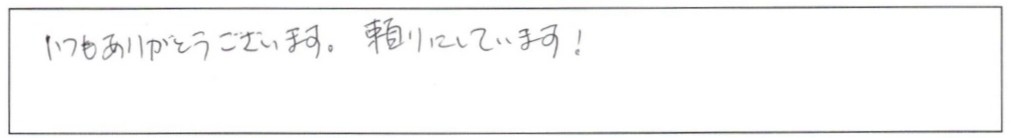 いつもありがとうございます。頼りにしています!